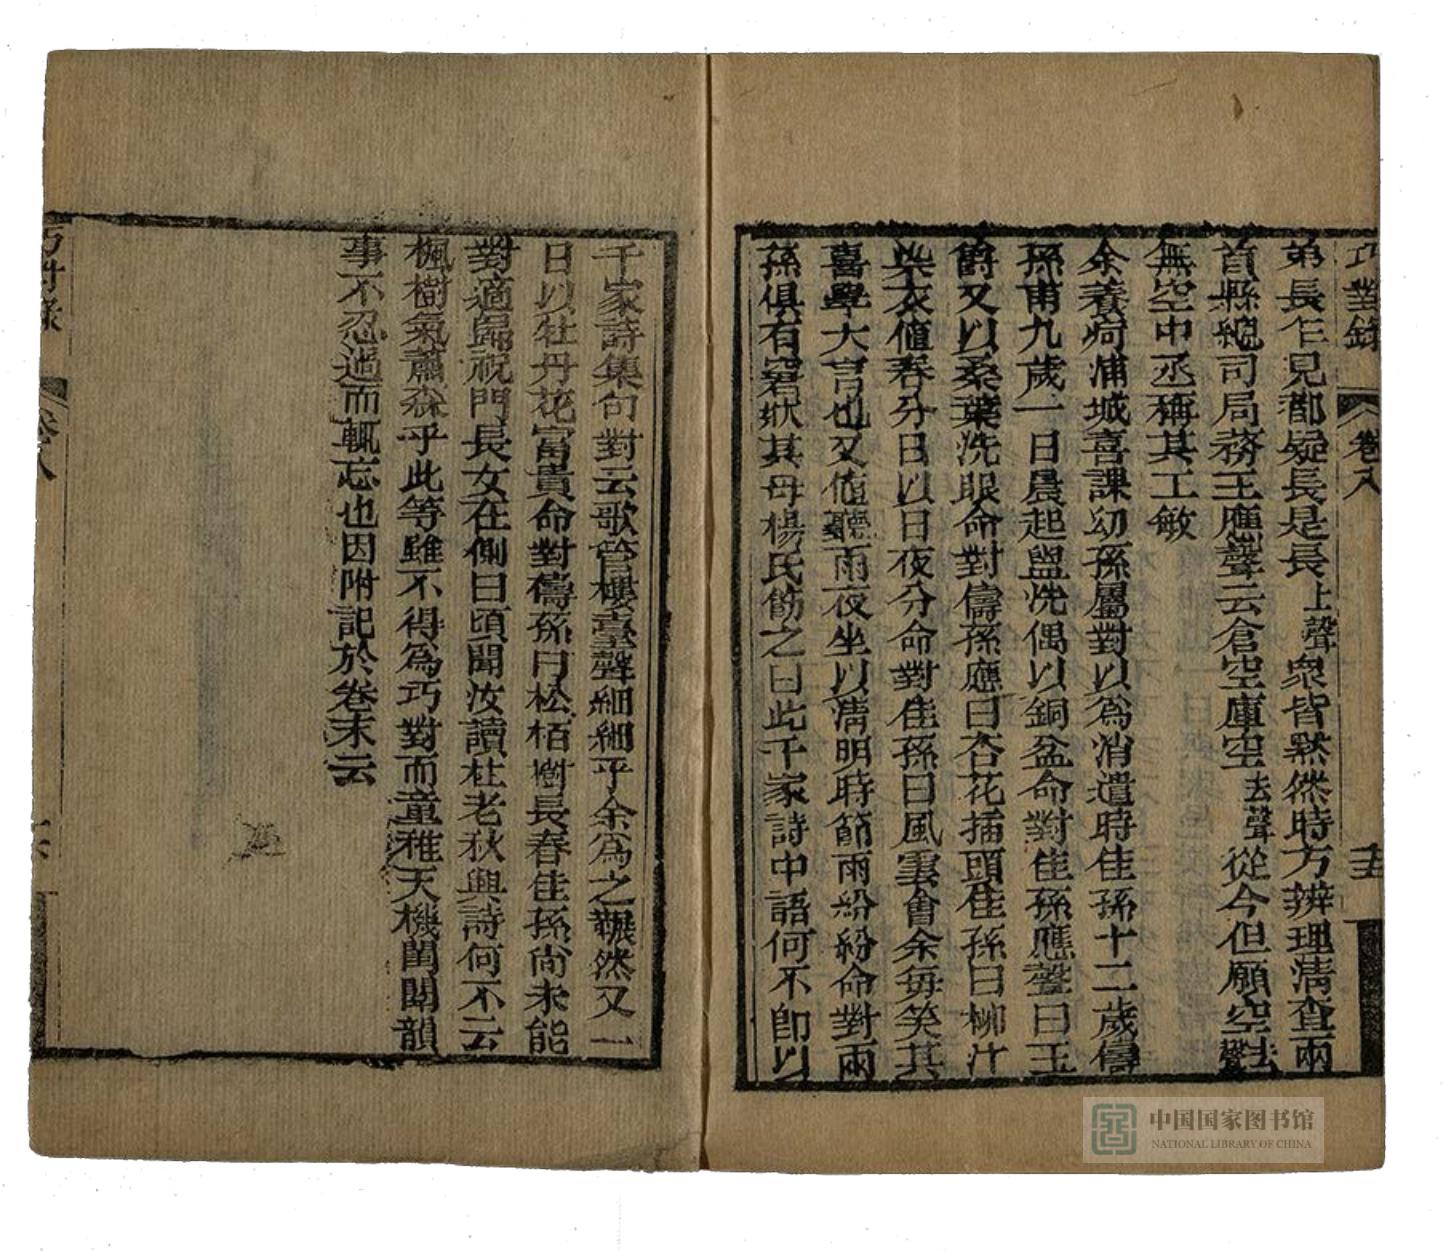 巧對錄 卷八 十五
弟長乍見都疑長是長上聲眾皆默然時方辨理清查兩
首縣總司局務王應聲云倉空庫空去聲從今但願空去聲
無空中丞稱其工敏
余養疴浦城喜課幼孫屬對以為消遣時佳孫十二歲儔
孫甫九歲一日晨起盥洗偶以銅盆命對佳孫應聲曰玉
爵又以桑葉洗眼命對儔孫應曰杏花插頭佳孫曰柳汁
染衣值春分日以日夜分命對佳孫曰風雲會余每笑其
喜學大言也又值聽雨夜坐以清明時節雨紛紛命對兩
孫俱有窘狀其母楊氏飭之曰此千家詩中語何不即以
千家詩集句對云歌管樓臺聲細細乎余為之囅然又一
日以牡丹花富貴命對儔孫曰松栢樹長春佳孫尚未能
對適歸祝門長女在側曰頃聞汝讀杜老秋興詩何不云
楓樹氣蕭森乎此等雖不得為巧對而童稚天機閨闥韻
事不忍過而輒忘也因附記於卷末云
巧對錄 卷八 十六
中国国家图书馆
NATIONAL LIBRARY OF CHINA